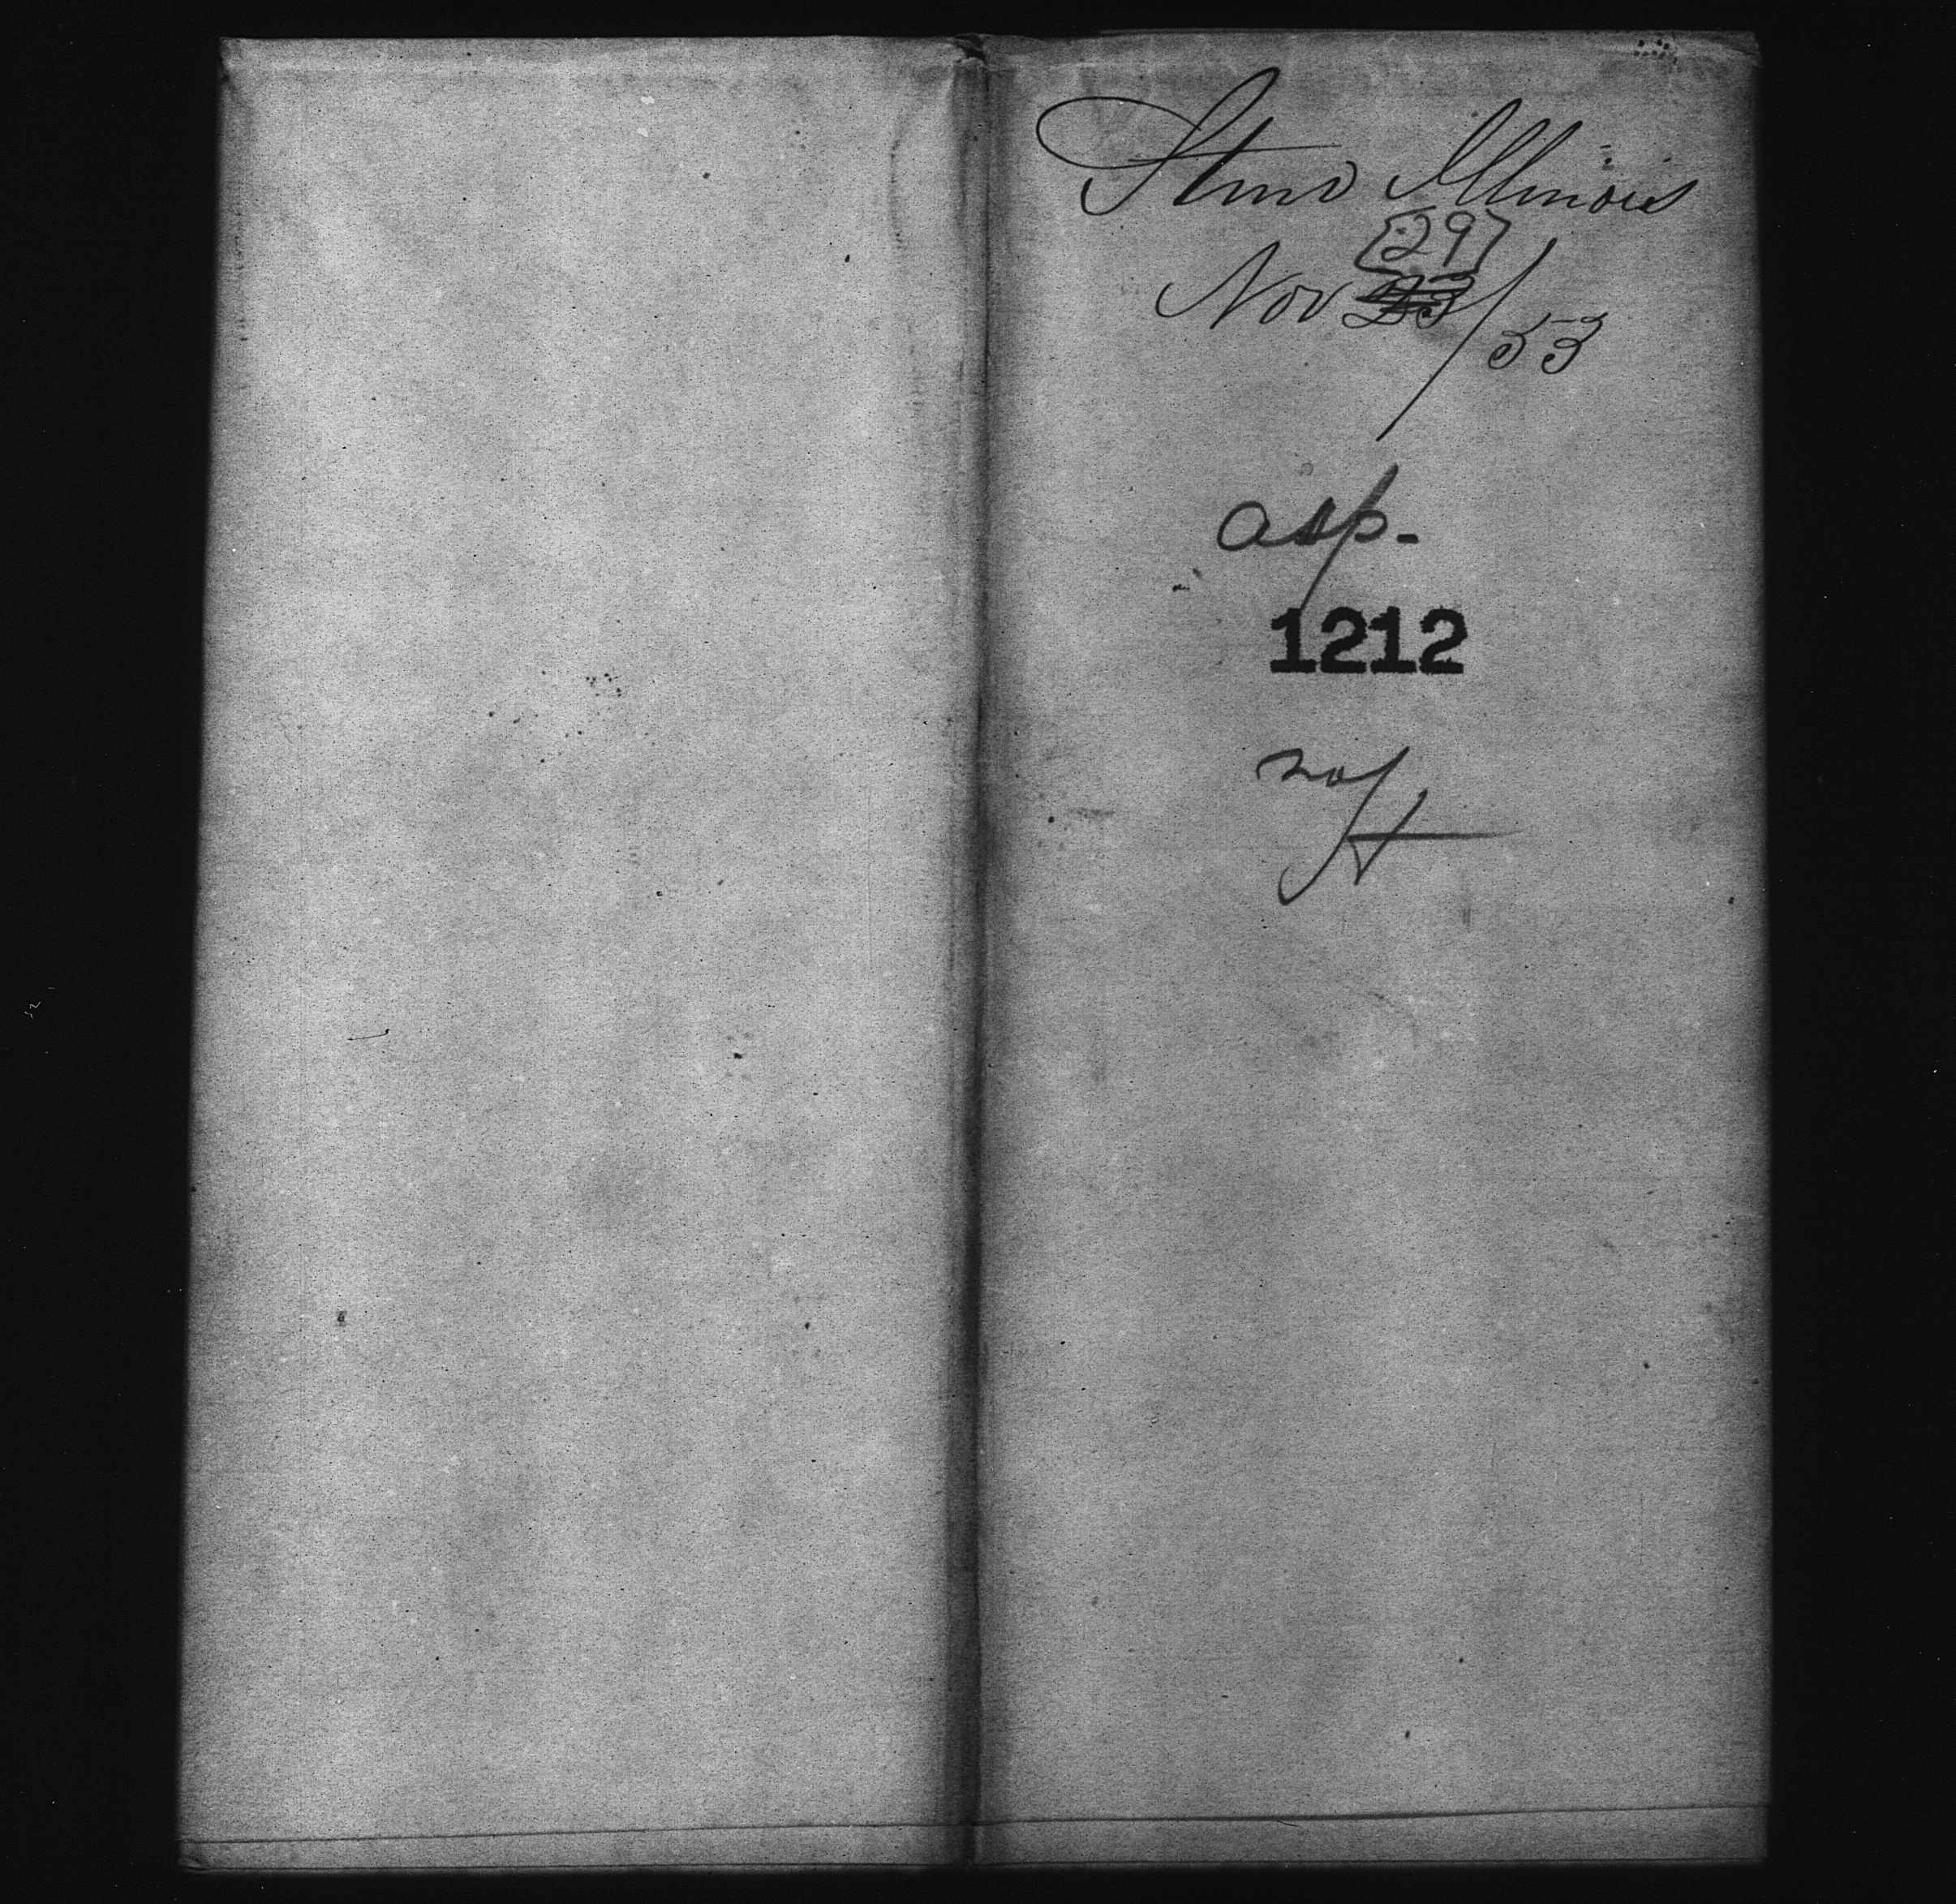 Stmr Illinois
[29]
Nov 23/53
asp.
1212